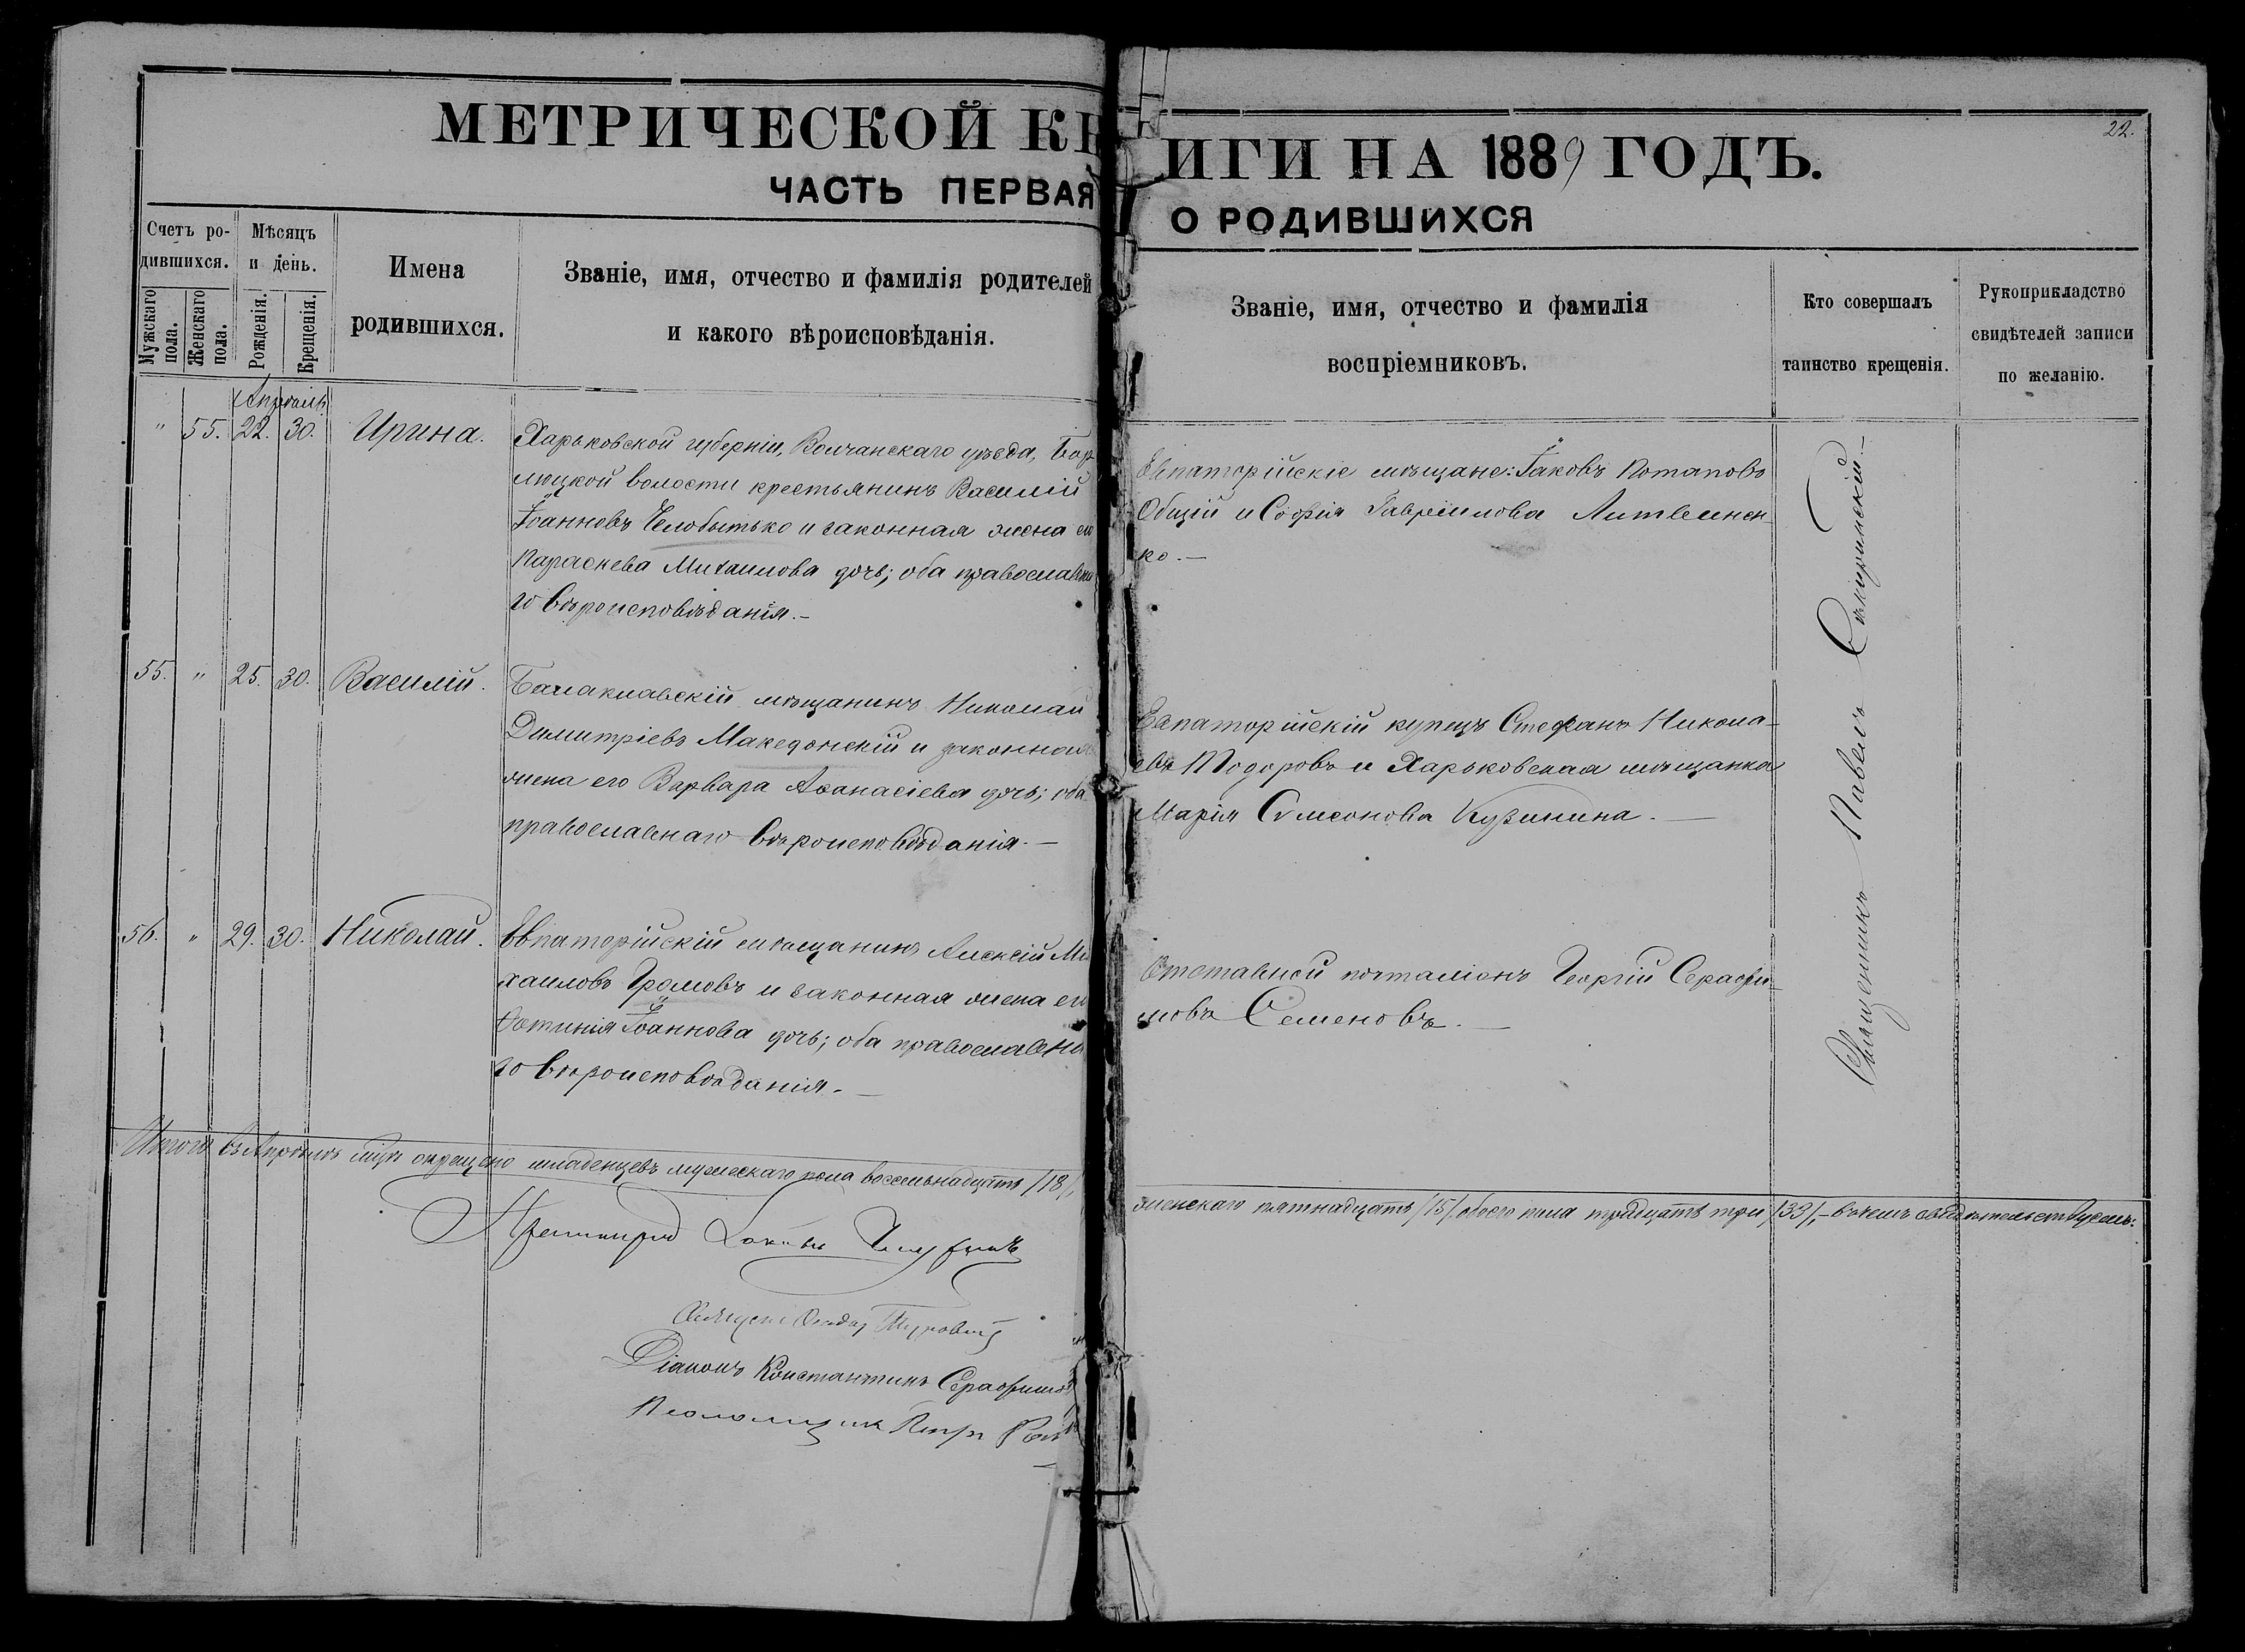 МЕТРИЧЕСКОЙ КНИГИ НА 1889 ГОДЪ.
22.
ЧАСТЬ ПЕРВАЯ О РОДИВШИХСЯ
Счетъ ро-
дившихся.
Мужскаго пола.
Женскаго пола.
Мѣсяцъ
и день.
Рожденія.
Крещенія.
Имена
родившихся.
Званіе, имя, отчество и фамилія родителей
и какого вѣроисповѣданія.
Званіе, имя, отчество и фамилія
воспріемниковъ.
Кто совершалъ
таинство крещенія.
Рукоприкладство
свидѣтелей записи
по желанію.
Апрѣль
" 55. 22. 30. Ирина.
Харьковской губерніи, Волчанскаго уѣзда, Бар
люцкой волости крестьянинъ Василій
Іоанновъ Челобытько и законная жена его
Параскева Михаилова дочь; оба православна
го вѣроисповѣданія.-
Евпаторійскіе мѣщане: Іаковъ Потаповъ
Общій и Софія Гавріилова Литвинен
ко.—
55. " 25. 30. Василій.
Балаклавскій мѣщанинъ Николай
Димитріевъ Македонскій и законная
жена его Варвара Аѳанасіева дочь; оба
православнаго вѣроисповѣданія.—
Евпаторійскій купецъ Стефанъ Никола-
евъ Тодоровъ и Харьковская мѣщанка
Марія Симеонова Кузинина.—
56. " 29. 30. Николай.
Евпаторійскій мѣщанинъ Алексій Ми
хаиловъ Громовъ и законная жена его
Фотинія Іоаннова дочь; оба православна
го вѣроисповѣданія.—
Отставной почталіонъ Георгій Серафи-
мовъ Семеновъ.—
Священникъ Павелъ Сокиринскій—
Итого въ Апрѣлѣ мцѣ окрещено младенцевъ мужескаго пола восемьнадцать /18/,
женскаго пятнадцать /15/, обоего пола тридцать три /33/,—въ чемъ свидѣтельствуемъ:
Діаконъ Константинъ Серафимовъ
Псаломщикъ Петръ